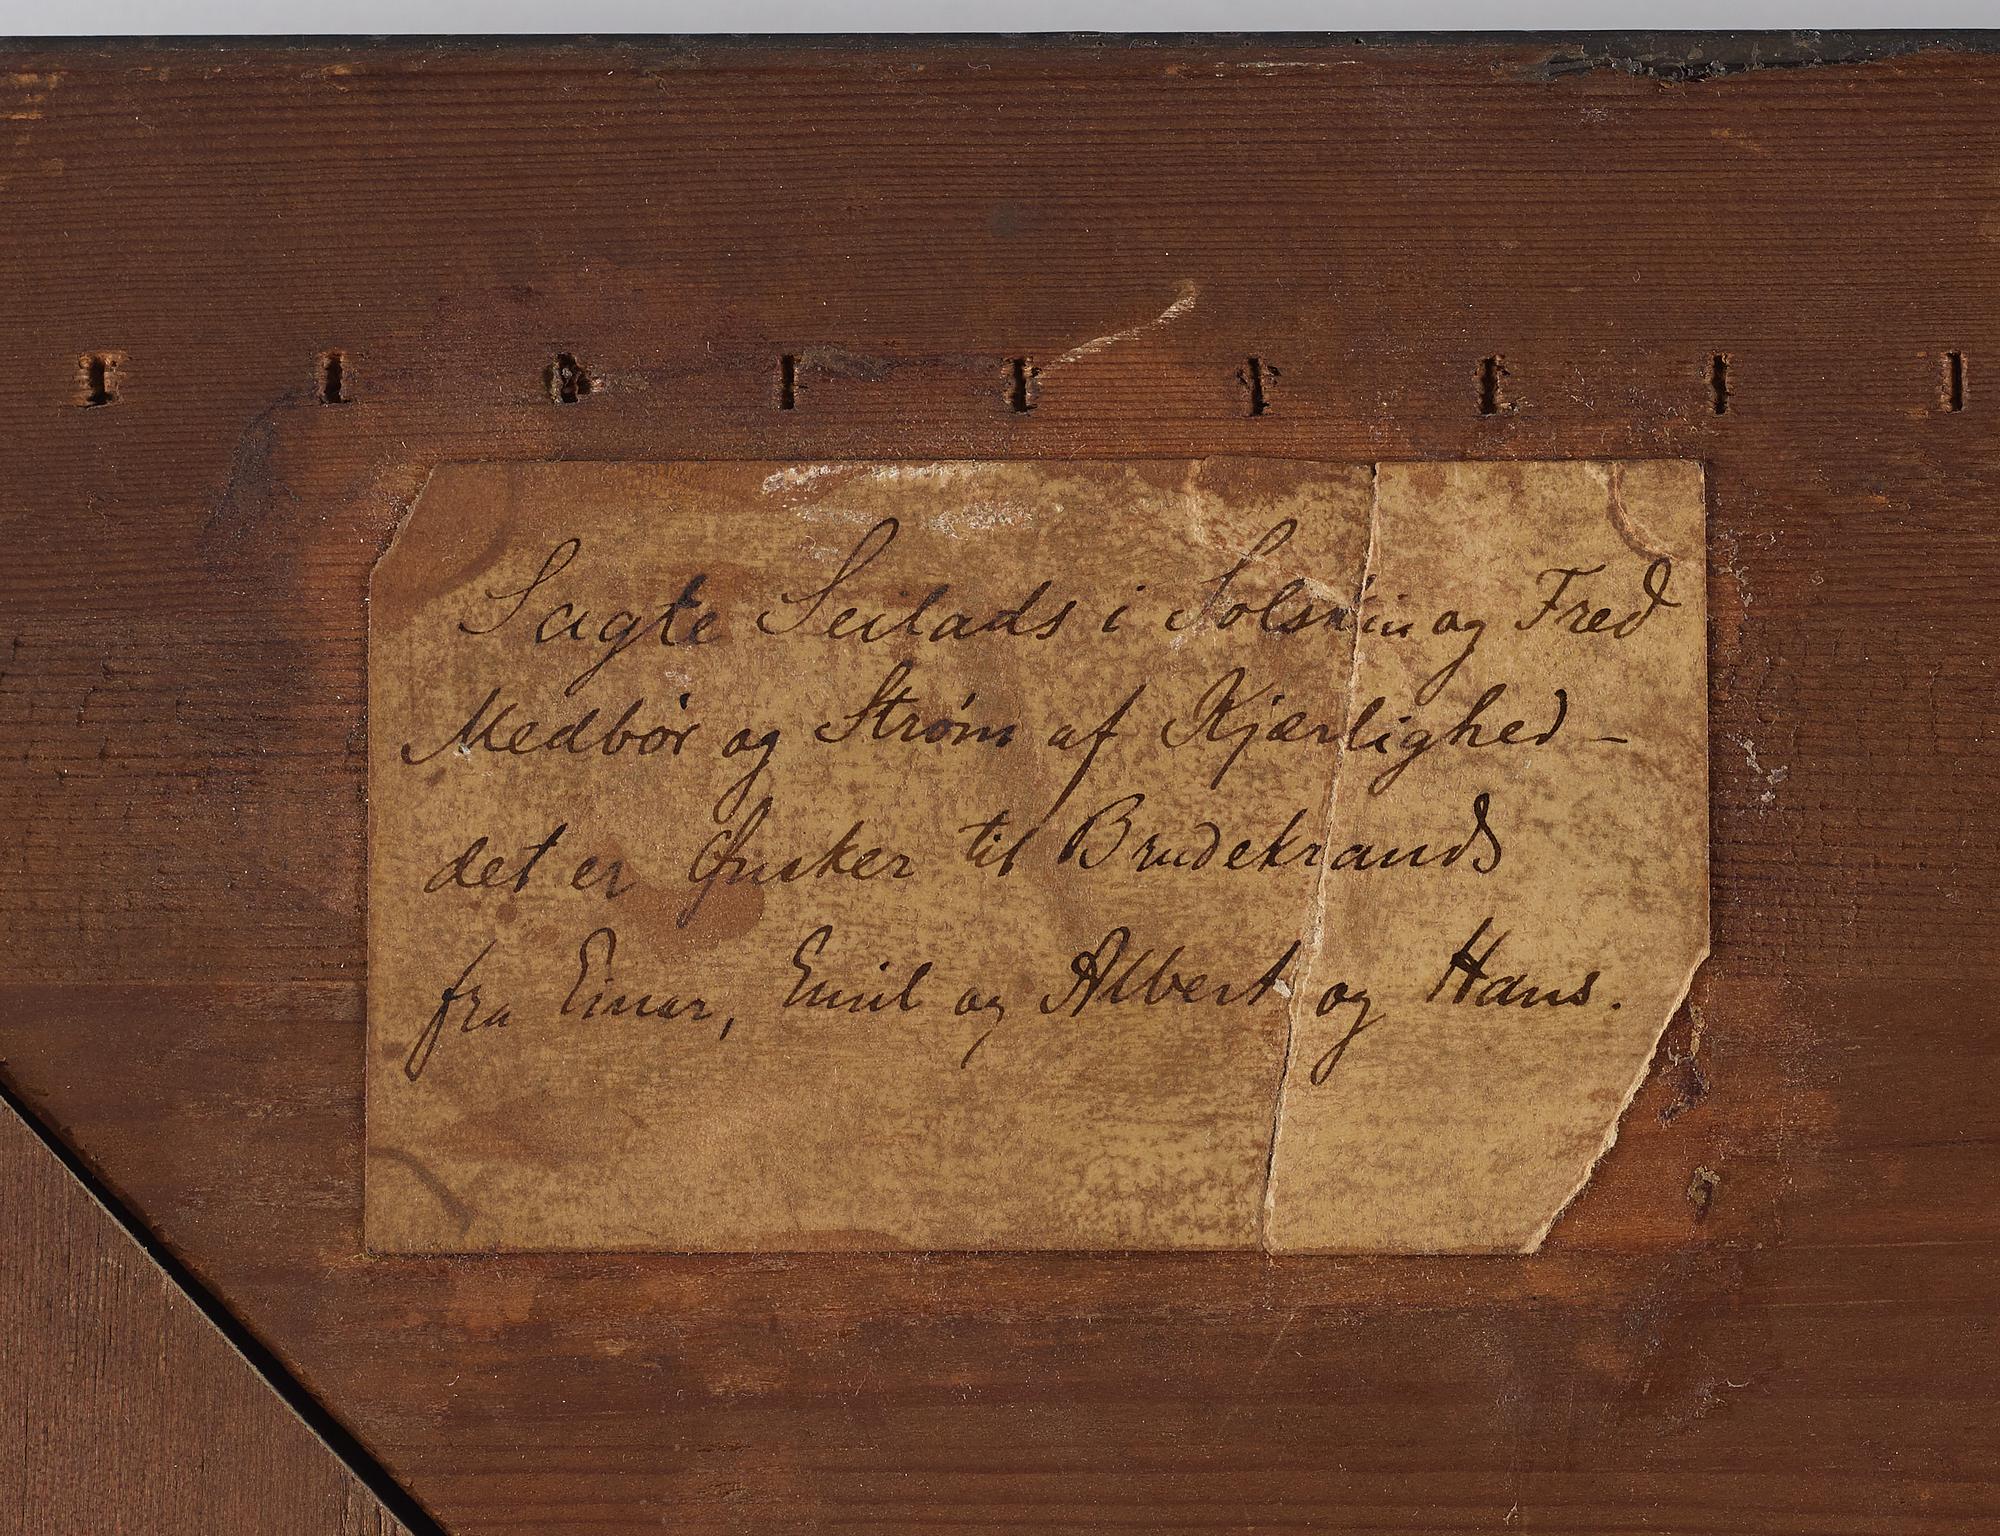 Sagte Seilads i Solskin og Fred
Medbør og Strøm af Kjærlighed –
det er Ønsker til Brudekrands
fra Einar, Emil og Albert og Hans.